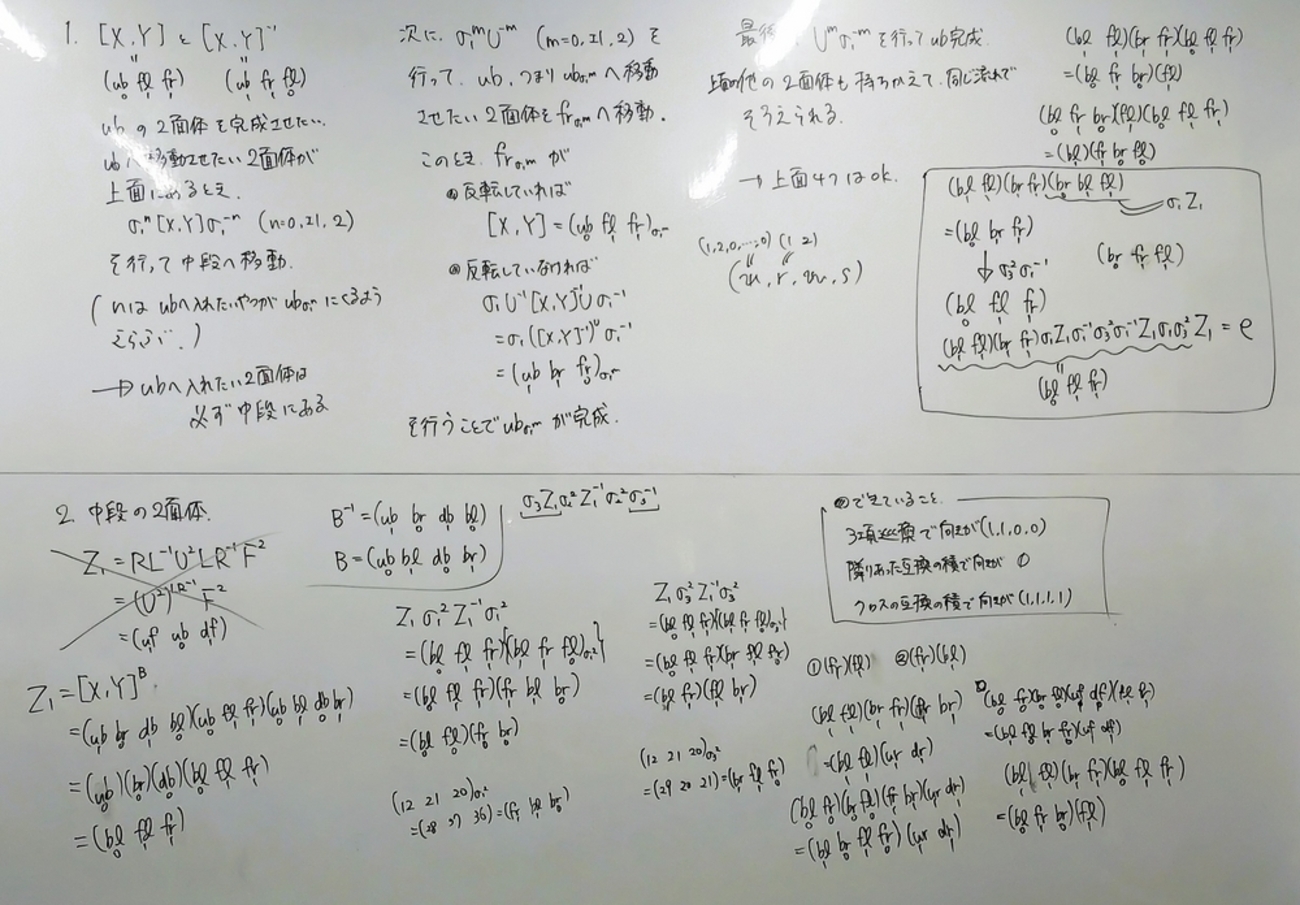 1. [X,Y] と [X,Y]⁻¹
(ub fl fr) (ub fr fl)
ubの2面体を完成させたい.
ubへ移動させたい2面体が
上面にあるとき.
σ₁ⁿ[X,Y]σ₁⁻ⁿ (n=0,±1,2)
を行って中段へ移動.
(nは ubへ入れたいやつが ubσ₁ⁿ にくるよう
えらぶ.)
→ ubへ入れたい2面体は
必ず中段にある
次に. σ₁ᵐU⁻ᵐ (m=0,±1,2) を
行って. ub. つまり ubσ₁ᵐ へ移動
させたい2面体を frσ₁ᵐ へ移動.
このとき. frσ₁ᵐ が
反転していれば
[X,Y]=(ub fl fr)
反転していなければ
σ₁U⁻¹[X,Y]⁻¹Uσ₁⁻¹
=σ₁([X,Y]⁻¹)ᵁσ₁⁻¹
=(ub br fr)
を行うことで ubσ₁ᵐ が完成.
最後 Uᵐσ₁⁻ᵐ を行って ub完成.
上面の他の2面体も持ちかえて.同じ流れで
そろえられる.
→ 上面4つはok.
(1,2,0,…,0) (1 2)
(bl fl)(br fr)(bl fl fr)
=(bl fr br)(fl)
(bl fr br)(fl)(bl fl fr)
=(bl)(fr br fl)
(bl fl)(br fr)(br bl fl)
σ₁Z₁
=(bl br fr)
(br fr fl)
↓σ₃²σ₁⁻¹
(bl fl fr)
(bl fl)(br fr)σ₁Z₁σ₁⁻¹σ₃²σ₁⁻¹Z₁σ₁σ₃²Z₁ = e
(bl fl fr)
2. 中段の2面体.
Z₁ = RL⁻¹U²LR⁻¹F²
=(uf ub df)
Z₁=[X,Y]ᴮ
=(ub br db bl)(ub fl fr)(ub bl db br)
=(ub)(br)(db)(bl fl fr)
=(bl fl fr)
B⁻¹=(ub br db bl)
B=(ub bl db br)
σ₃Z₁σ₂²Z₁⁻¹σ₂²σ₃⁻¹
Z₁σ₁²Z₁⁻¹σ₁²
=(bl fl fr){(bl fr fl)σ₁²}
=(bl fl fr)(fr bl br)
=(bl fl)(fr br)
(12 21 20)σ₁²
=(28 37 36)=(fr bl br)
Z₁σ₃²Z₁⁻¹σ₃²
=(bl fl fr){(bl fr fl)σ₃²}
=(bl fl fr)(br fl fr)
=(bl fr)(fl br)
(12 21 20)σ₃²
=(29 20 21)=(br fl fr)
できていること.
3項巡換で向きが(1,1,0,0)
隣りあった互換の積で向きが 0
クロスの互換の積で向きが(1,1,1,1)
①(fr)(fl) ②(fr)(bl)
(bl fl)(br fr)(fr br)
=(bl fl)(ur dr)
(bl fr)(br fl)(fr br)(ur dr)
=(bl br fl fr)(ur dr)
(bl fr)(br fl)(uf df)(fl fr)
=(bl fl br fr)(uf df)
(bl fl)(br fr)(bl fl fr)
=(bl fr br)(fl)